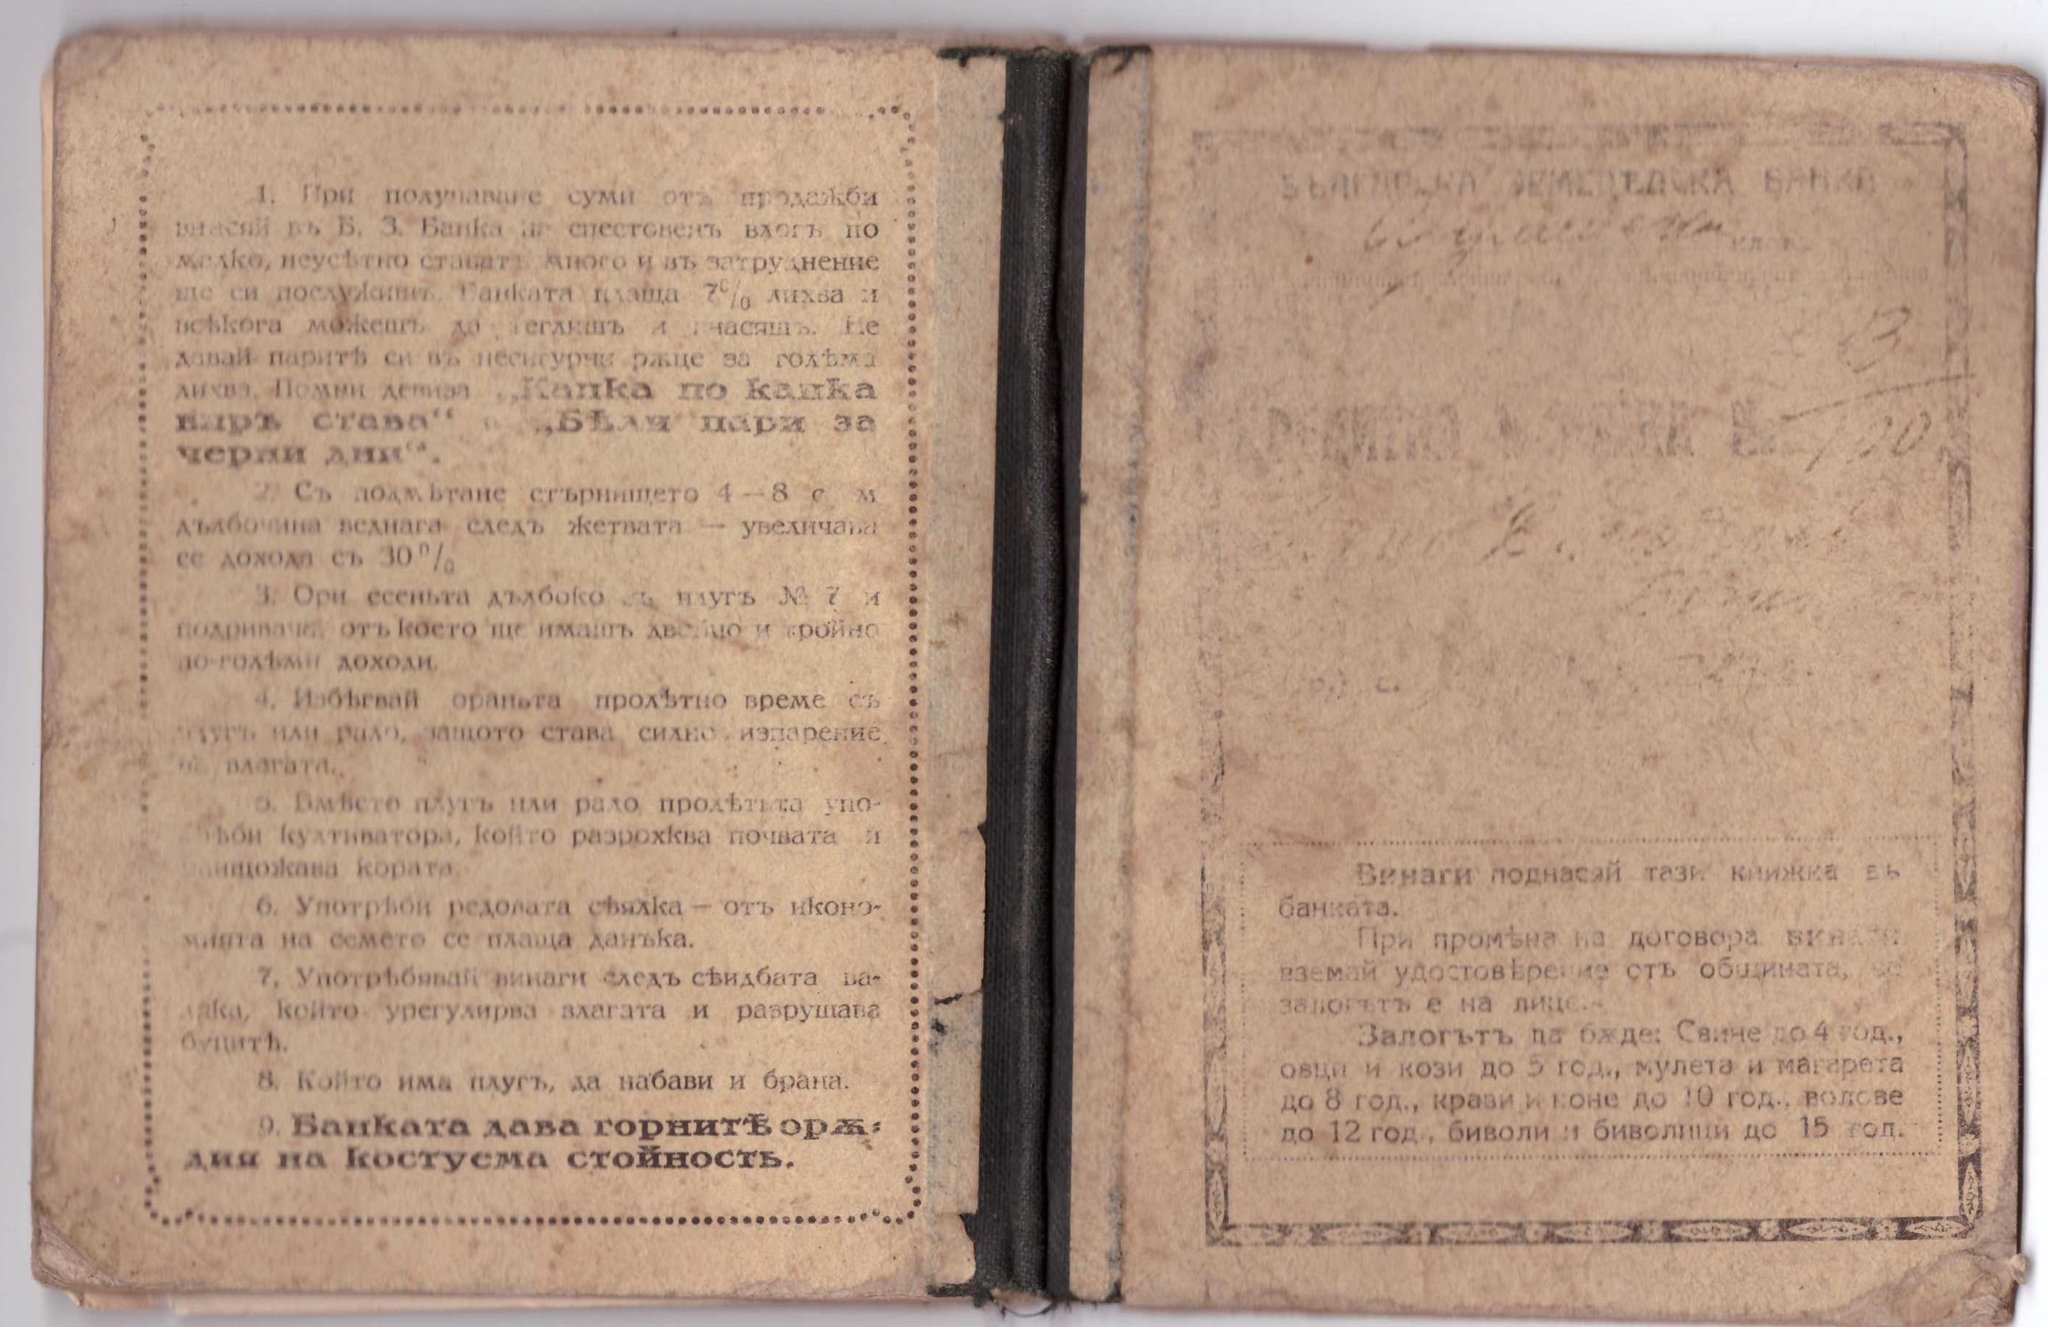 1. При получаване суми отъ продажби
внасяй въ Б. З. Банка на спестовенъ влогъ по
малко, неусѣтно ставатъ много и въ затруднение
ще си послужишъ. Банката плаща 7% лихва и
всѣкога можешъ да теглишъ и внасяшъ. Не
давай паритѣ си въ несигурни рѫце за голѣма
лихва. Помни девиза „Капка по капка
виръ става“ и „Бѣли пари за
черни дни“.
2. Съ подмѣтане стърнището 4—8 с. м
дълбочина веднага следъ жетвата — увеличава
се дохода съ 30%
3. Ори есеньта дълбоко съ плугъ № 7 и
подривачъ, отъ което ще имашъ двойно и тройно
по-голѣми доходи.
4. Избѣгвай ораньта пролѣтно време съ
плугъ или рало, защото става силно изпарение
на влагата.
5. Вмѣсто плугъ или рало пролѣтьта упо-
трѣби култиватора, който разрохква почвата и
унищожава кората.
6. Употрѣби редовата сѣялка — отъ иконо-
мията на семето се плаща данъка.
7. Употрѣбявай винаги следъ сѣидбата ва-
ляка, който урегулирва влагата и разрушава
буцитѣ.
8. Който има плугъ, да набави и брана.
9. Банката дава горнитѣ орѫ-
дия на костуема стойность.
БЪЛГАРСКА ЗЕМЕДѢЛСКА БАНКА
клонъ
3
100
Винаги поднасяй тази книжка въ
банката.
При промѣна на договора винаги
вземай удостовѣрение отъ общината, че
залогътъ е на лице.
Залогътъ да бѫде: Свине до 4 год.,
овци и кози до 5 год., мулета и магарета
до 8 год., крави и коне до 10 год., волове
до 12 год., биволи и биволици до 15 год.